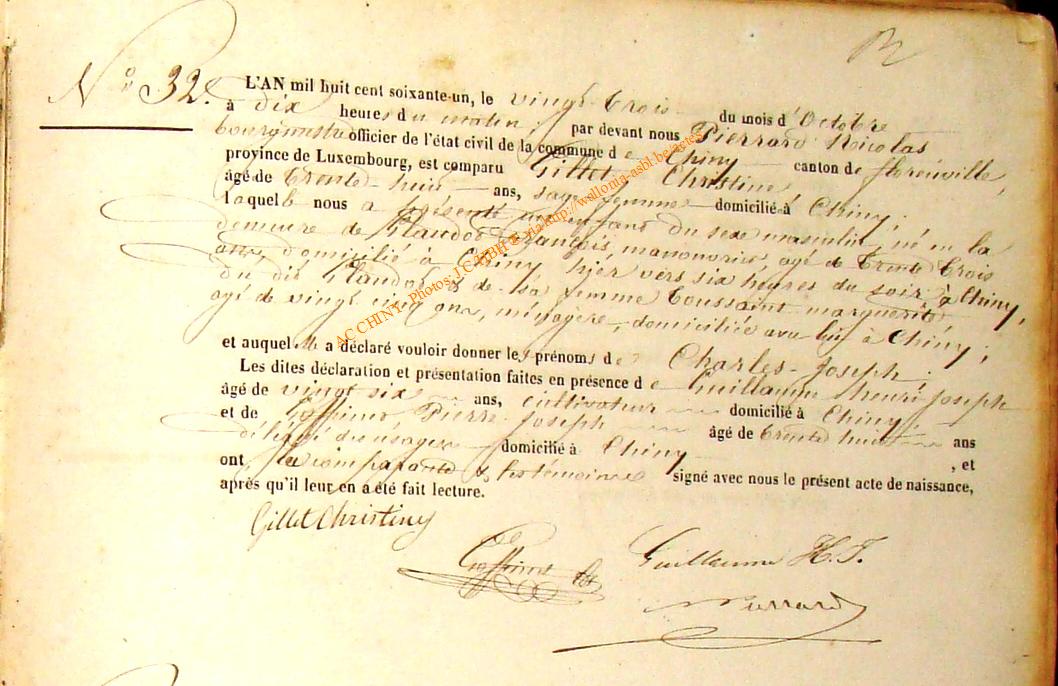 N° 32.
L'AN mil huit cent soixante-un, le vingt-trois du mois d'Octobre
à dix heures du matin, par devant nous Pierrard Nicolas
bourgmestre officier de l'état civil de la commune de Chiny canton de florenville,
province de Luxembourg, est comparu Gillet, Christine
âgé de trente-huit ans, sage femme domiciliée à Chiny;
laquelle nous a présenté un enfant du sexe masculin, né en la
demeure de François, manouvrier agé de trente trois
ans domicilié à Chiny hier vers six heures du soir, à Chiny,
du dit & de sa femme toussaint marguerite
agé de vingt cinq ans, ménagère, domiciliée avec lui à Chiny;
et auquel elle a déclaré vouloir donner les prénoms de Charles-Joseph;
Les dites déclaration et présentation faites en présence de Guillaume henri-joseph
âgé de vingt six ans, cultivateur domicilié à Chiny,
et de Pierre-Joseph âgé de trente huit ans
domicilié à Chiny, et
ont, la comparante & les témoins signé avec nous le présent acte de naissance,
après qu'il leur en a été fait lecture.
Gillet Christine
Guillaume H. J.
Pierrard
AC CHINY - Photos J.C. via http://wallonia-asbl.be/actes